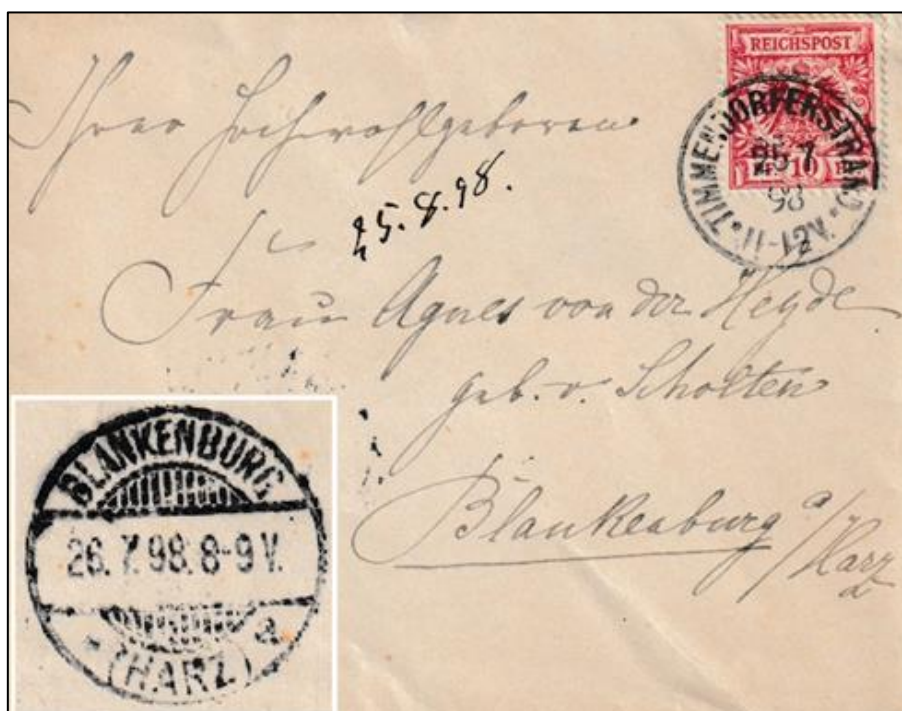 REICHSPOST
10
TIMMENDORFERSTRAND
25.7
98
11-12V.
Ihrer Hochwohlgeboren
25.8.98.
Frau Agnes von der Heyde
geb. v. Scholten
Blankenburg a/Harz
BLANKENBURG
26.7.98. 8-9 V.
* (HARZ) a